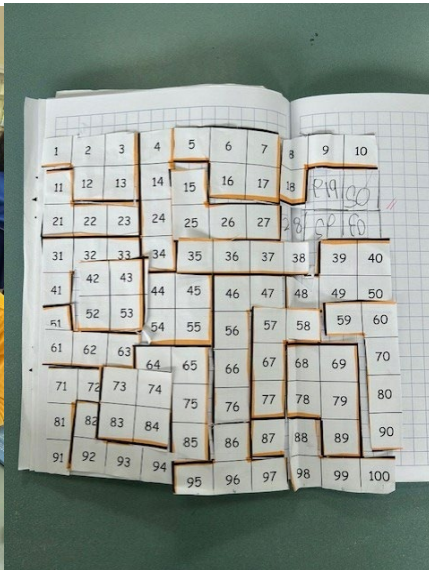 1 2 3 4 5 6 7 8 9 10
11 12 13 14 15 16 17 18
21 22 23 24 25 26 27 28
31 32 33 34 35 36 37 38 39 40
41 42 43 44 45 46 47 48 49 50
51 52 53 54 55 56 57 58 59 60
61 62 63 64 65 66 67 68 69 70
71 72 73 74 75 76 77 78 79 80
81 82 83 84 85 86 87 88 89 90
91 92 93 94 95 96 97 98 99 100